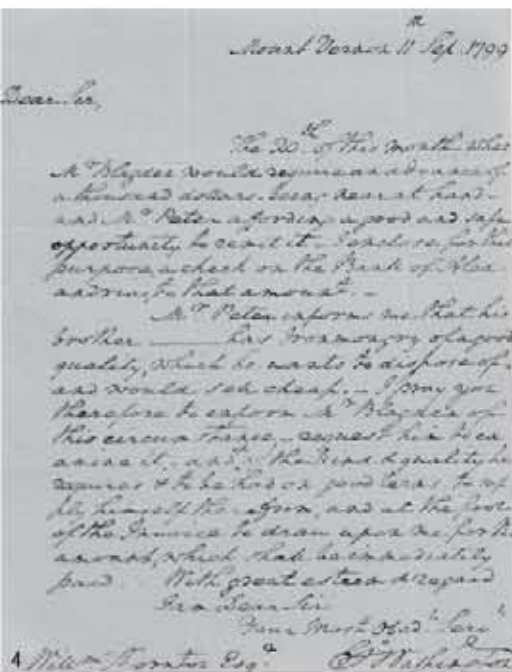 Mount Vernon 11th Sep. 1799
Dear Sir,
The 20th of this month when
Mr Blagden would require an advance of
a thousand dollars being near at hand
and Mr Peter affording a good and safe
opportunity to remit it I enclose for this
purpose a check on the Bank of Alex
andria, for that amount. –
Mr Peter informs me that his
brother ——— has Ironmongry of a good
quality, which he wants to dispose of,
and would sell cheap. – I pray you
therefore to inform Mr Blagden of
this circumstance, – request him to ex
amine it, and the kind & quality he
requires & to be had on good terms, to sup
ply himself there from, and at the foot
of the Invoice to draw upon me for the
amount, which shall be immediately
paid. With great esteem & regard
I am Dear Sir
Your Most Obedt Servt
4 Willm Thornton Esqr Go Washington